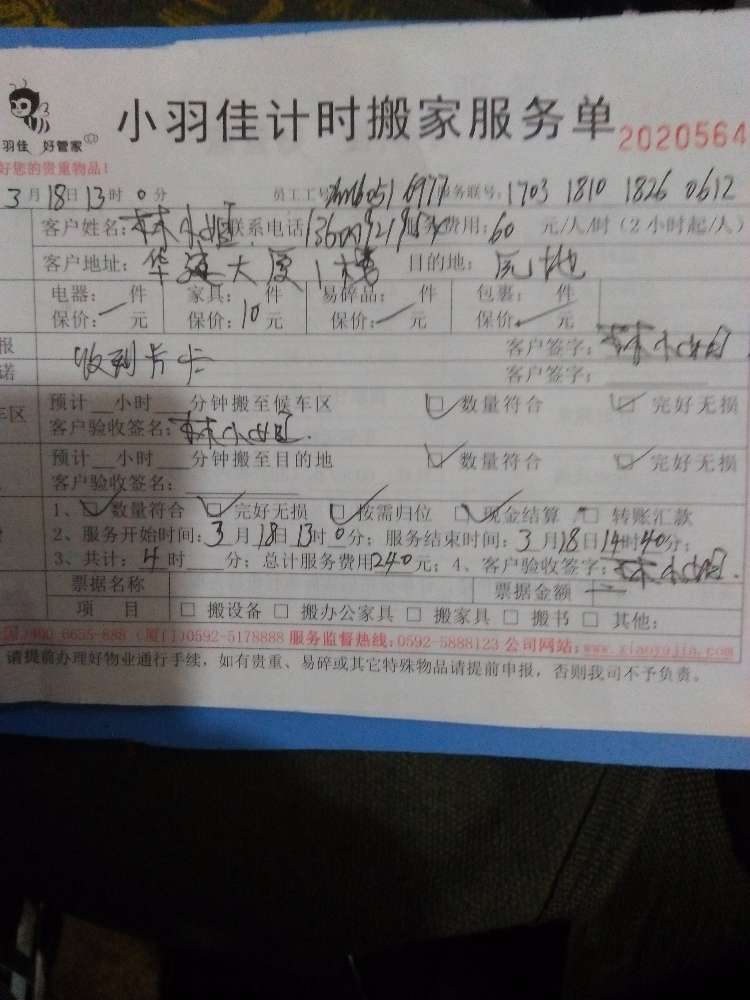 小羽佳计时搬家服务单
2020564
羽佳 好管家
好您的贵重物品!
3月18日13时0分 员工工号 6977 务联号:1703 1810 1826 0612
客户姓名:林小姐 联系电话 服务费用:60 元/人/时(2小时起/人)
客户地址:华建大厦1楼 目的地:原地
电器: 件 家具: 件 易碎品: 件 包裹: 件
保价:一元 保价:10元 保价:一元 保价 元
报 客户签字:林小姐
诺 收到卡 客户签字:
车区 预计__小时__分钟搬至候车区 数量符合 完好无损
客户验收签名:林小姐
预计__小时__分钟搬至目的地 数量符合 完好无损
客户验收签名:
1、数量符合 完好无损 按需归位 现金结算 转账汇款
2、服务开始时间:3月18日13时0分;服务结束时间:3月18日14时40分;
3、共计:4时__分;总计服务费用240元;4、客户验收签字:林小姐
票据名称 票据金额 一
项 目 □搬设备 □搬办公家具 □搬家具 □搬书 □其他:
国)400 6655-888 (厦门)0592-5178888 服务监督热线:0592-5888123 公司网站:www.xiaoyujia.com
请提前办理好物业通行手续,如有贵重、易碎或其它特殊物品请提前申报,否则我司不予负责。